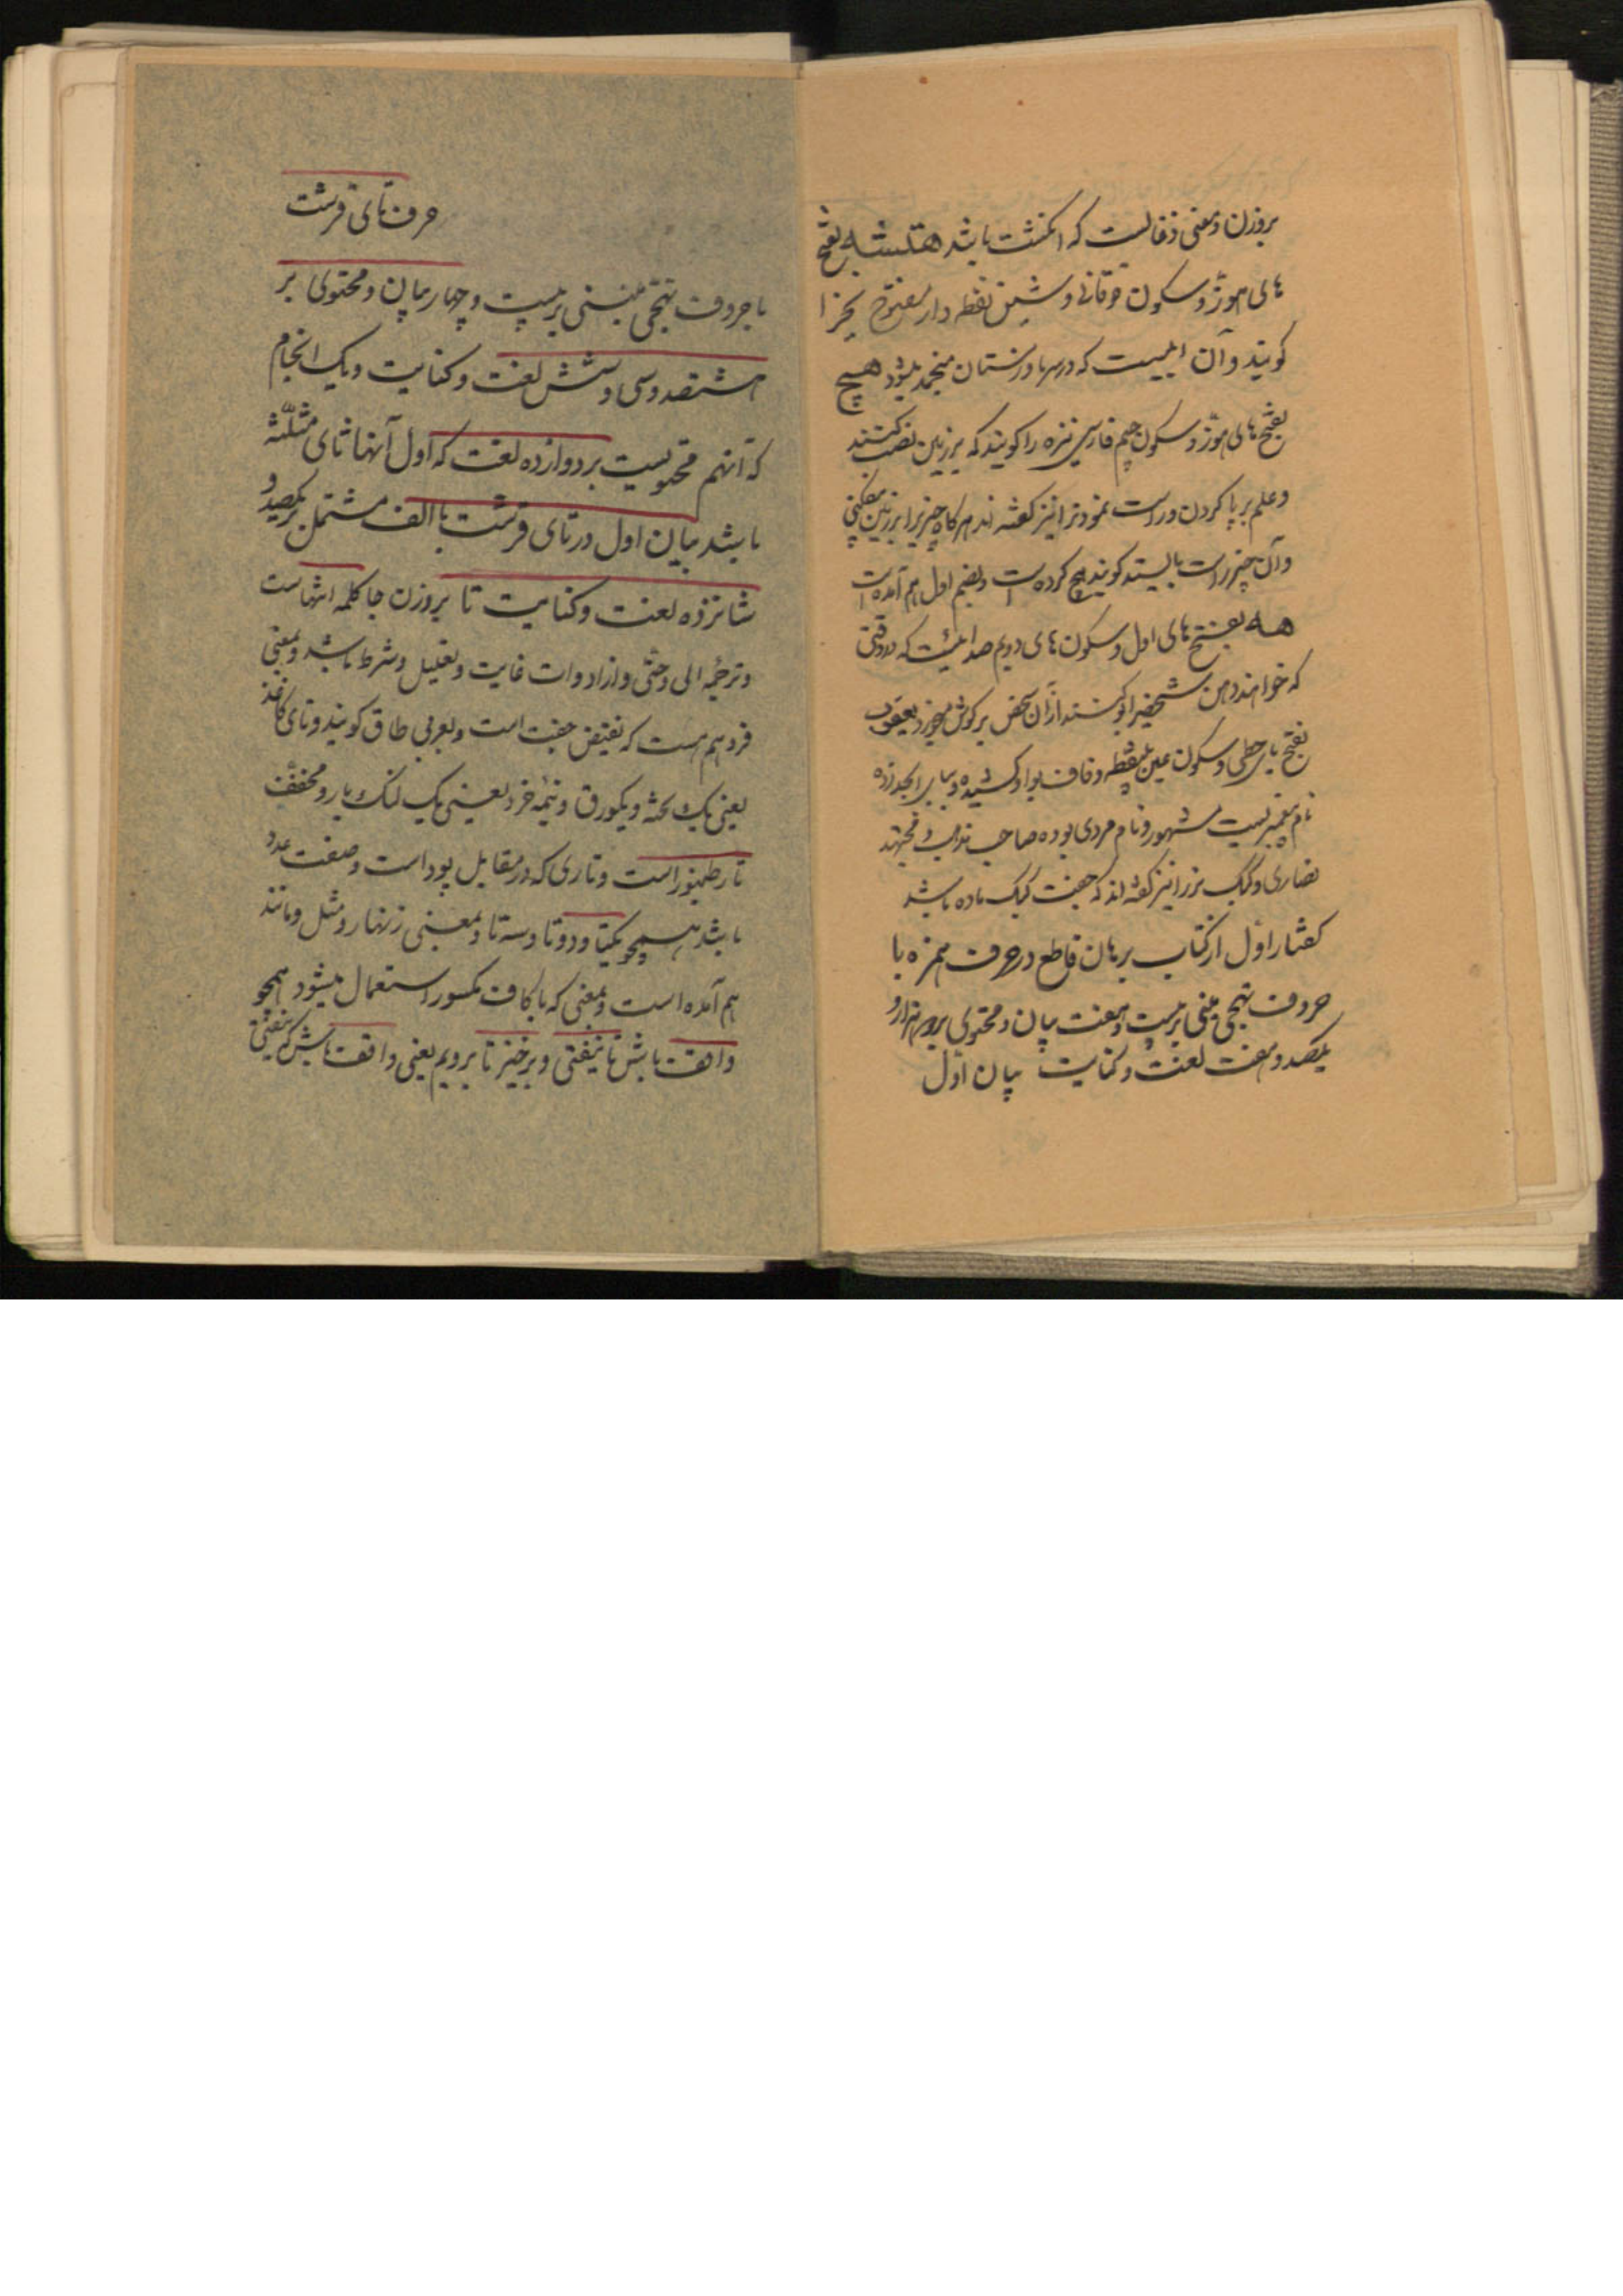 بروزن و معنی ذغالست که انکشت باشد هتشه بفتح
های هوز و سکون فوقانی و شین نقطه دار مفتوح یخ را
کویند و آن آبیست که در سرما و زمستان منجمد میشود هیچ
بفتح های هوز و سکون جیم فارسی نیزه را کویند که بر زمین نصب کنند
و علم بر پا کردن و راست نمودن را نیز کفته اند هرکاه چیزیرا بر زمین
و آن چیز راست بایستد کویند هچ کرده است و بضم اول هم آمده است
هه بفتح های اول و سکون های دویم صدائیست که در وقتی
که خواهند دهن شخصی را بوکنند از آن شخص بر کوش میخورد یعقوب
بفتح یای حطی و سکون عین بینقطه و قاف بواو کشیده و ببای ابجد زده
نام پیغمبریست مشهور و نام مردی بوده صاحب مذهب و مجتهد
نصاری و کبک نر را نیز کفته اند که جفت کبک ماده باشد
کفتار اول از کتاب برهان قاطع در حرف همزه با
حروف تهجی مبنی بر بیست و هفت بیان و محتوی بر هزار و
یکصد و هفت لغت و کنایت بیان اول
حرف تای قرشت
با حروف تهجی مبتنی بر بیست و چهار بیان و محتوی بر
هشتصد و سی و شش لغت و کنایت و یک انجام
که آنهم محتویست بر دوازده لغت که اول آنها ثای مثلثه
باشد بیان اول در تای قرشت با الف مشتمل بر یکصد و
شانزده لغت و کنایت تا بروزن جا کلمه انتهاست
و ترجمه الی و حتی و از ادوات غایت و تعلیل و شرط باشد و بمعنی
فرد هم هست که نقیض جفت است و بعربی طاق کویند و تای کاغذ
یعنی یک تخته و یکورق و نیمه خرد یعنی یک لنک بار و مخفف
تار طنبور است و تاری که در مقابل پود است و صفت عدد
باشد همچو یکتا و دوتا و سه تا و بمعنی زنهار و مثل و مانند
هم آمده است و بمعنی که با کاف مکسور استعمال میشود همچو
واقف باش تا نیفتی و برخیز تا برویم یعنی واقف باش که نیفتی